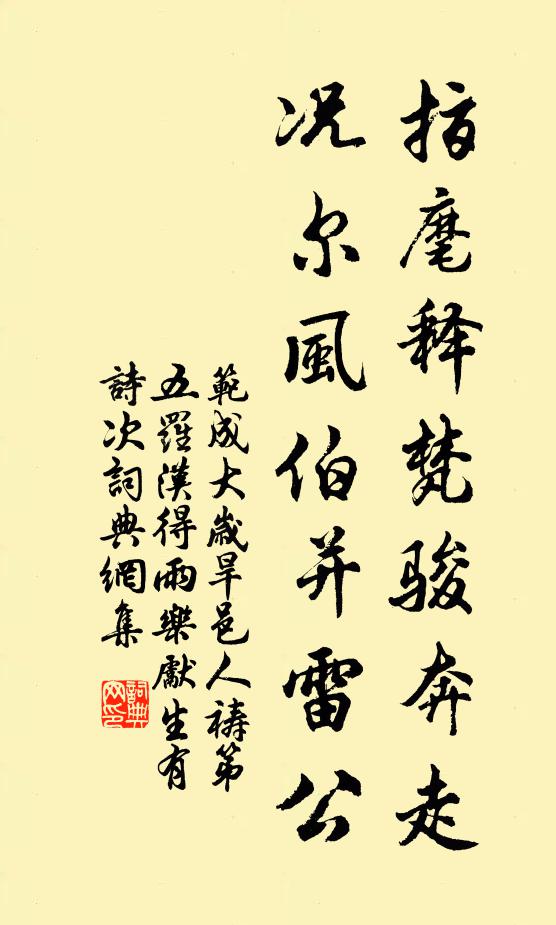 指麾释梵骏奔走
况尔風伯并雷公
範成大歲旱邑人祷第
五羅漢得雨樂獻生有
詩次詞典網集
詞典
网印